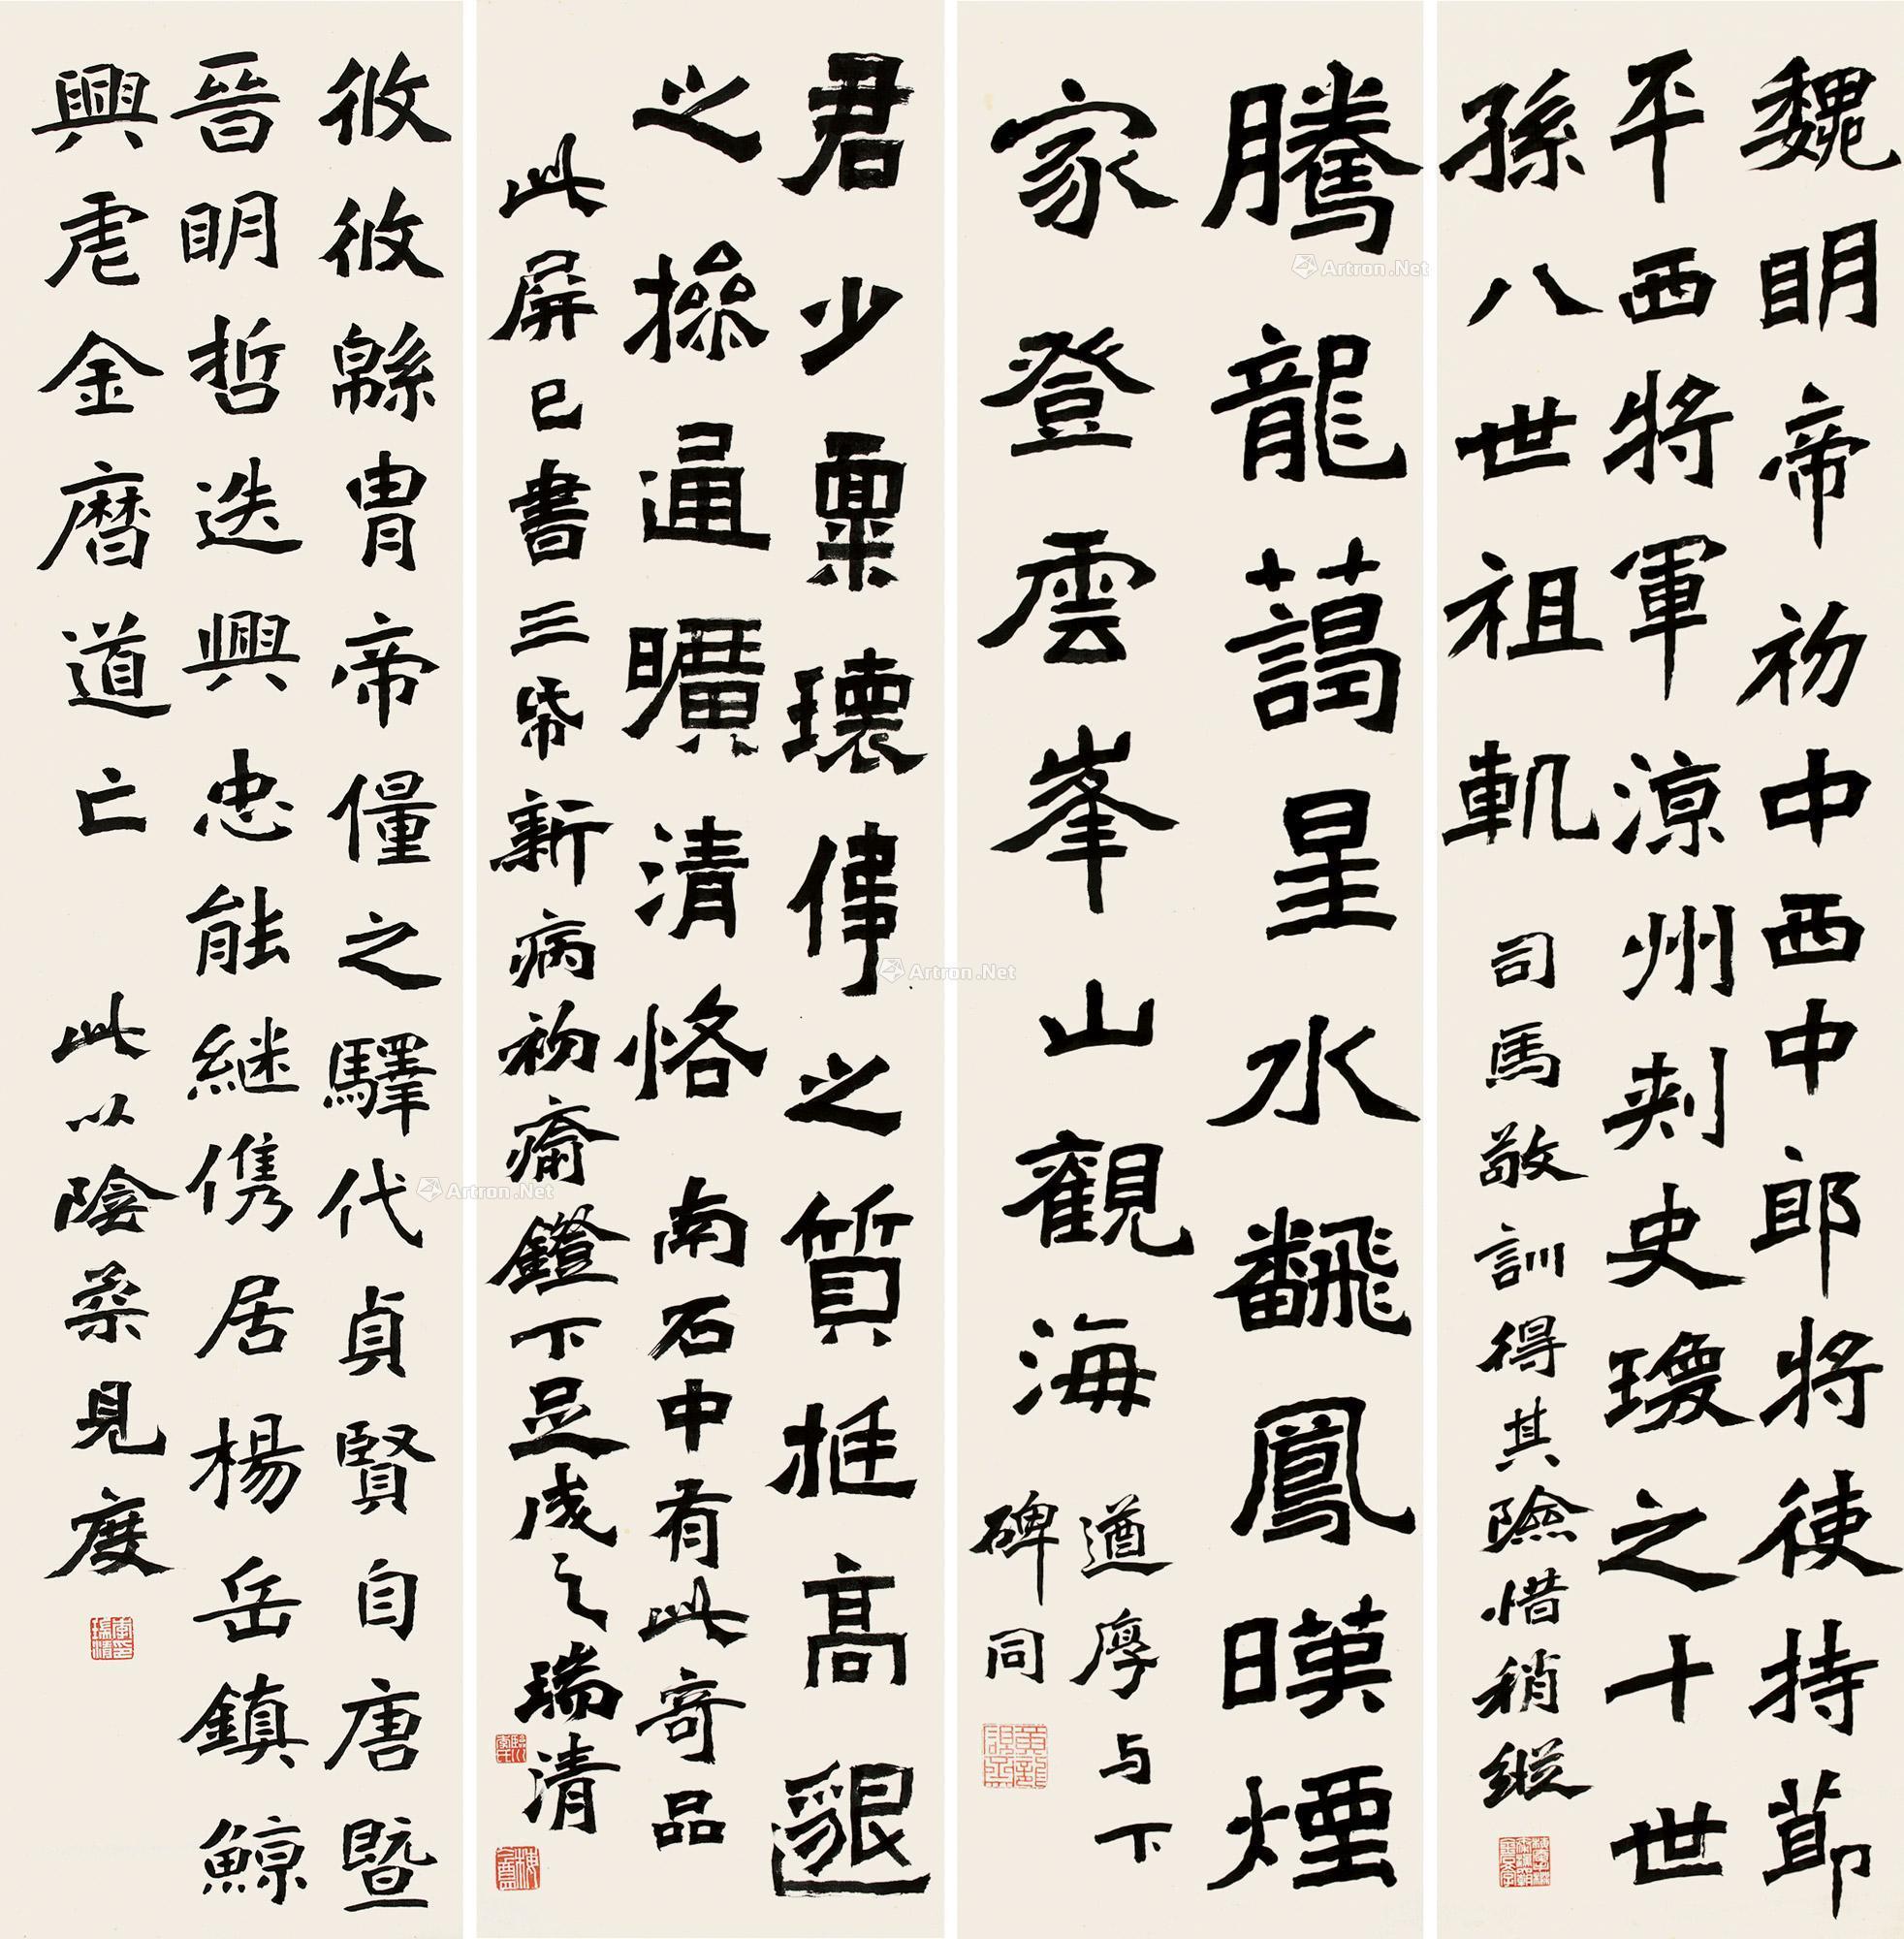 魏明帝初中西中郎将使持茆
平西将軍涼州刺史瓊之十世
孫八世祖軌
司馬敬訓得其險惜稍縱
騰龍藹星水飜鳳暎煙
家登雲峯山觀海
遒厚与下
碑同
君少稟瓌偉之質挺高邈
之操通曠清恪
南石中有此奇品
此屏已書三帋新病初癒鐙下足成之瑞清
攸攸緜胄帝僮之驛代貞賢自唐暨
晉明哲迭興忠能継儁居楊岳鎮鯨
興虎金曆道亡
此以陰柔見度
Artron.Net
Artron.Net
Artron.Net